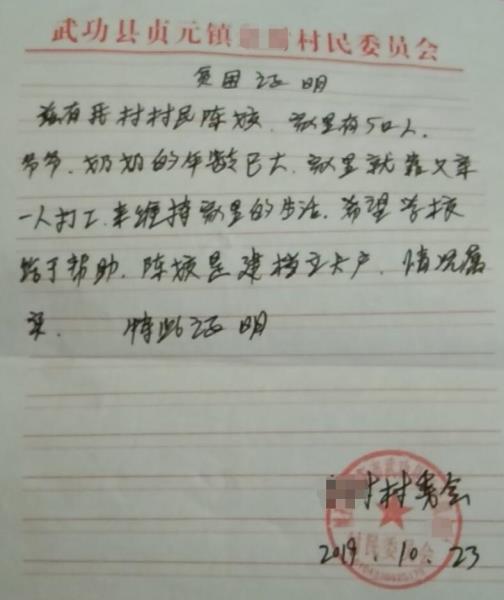 武功县贞元镇 村民委员会
贫困证明
兹有我村村民陈姣，家里有5口人。
爷爷、奶奶的年龄已大，家里就靠父亲
一人打工来维持家里的生活。希望学校
给予帮助。陈姣是建档立卡户，情况属
实。 特此证明
村村委会
村民委员会
2019.10.23